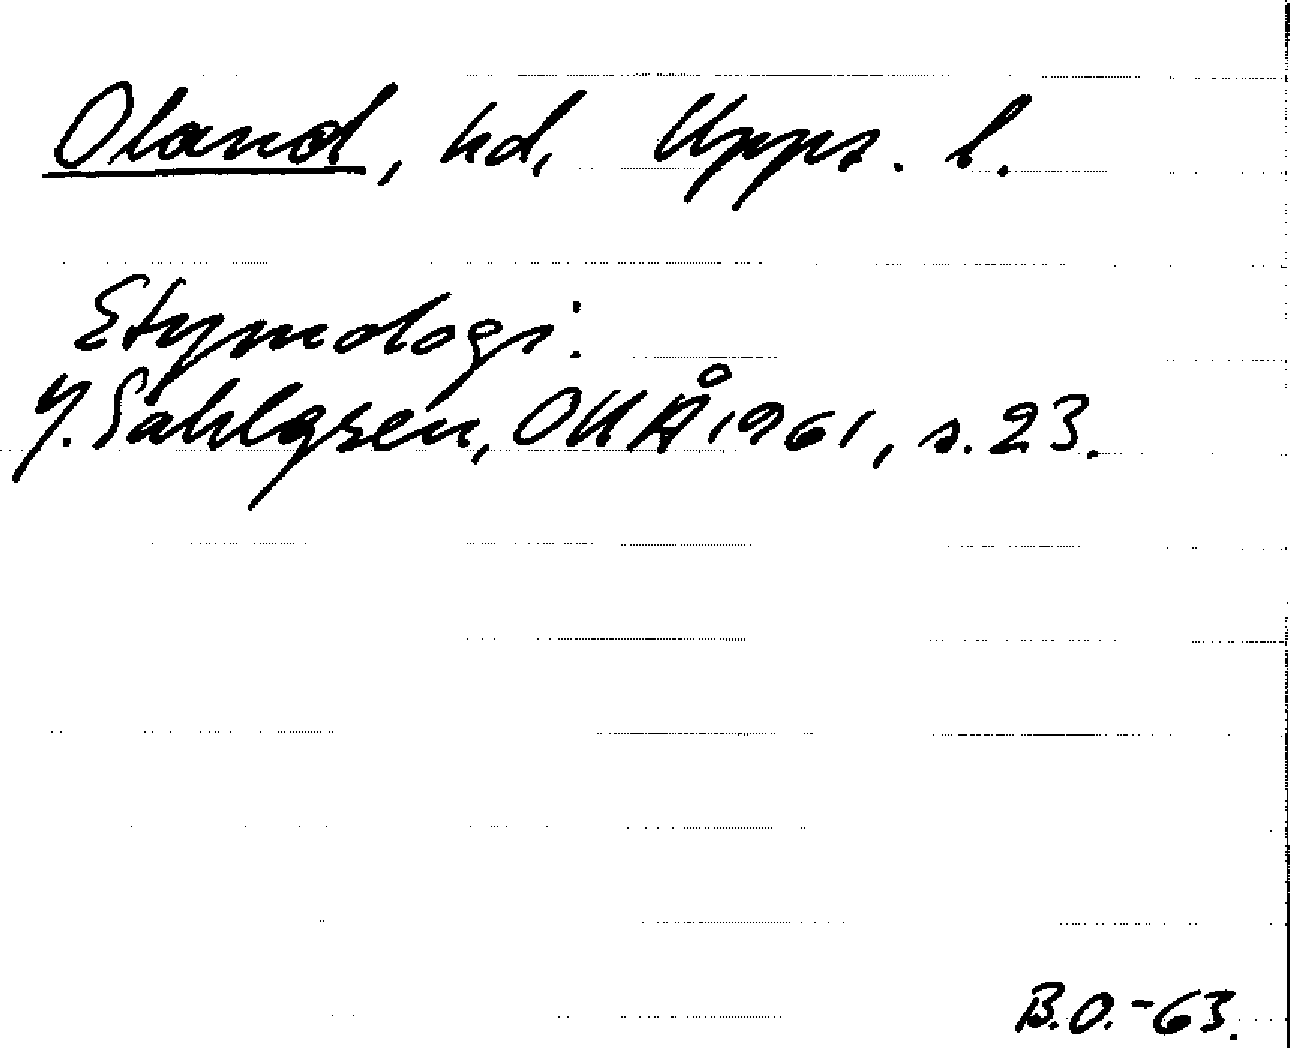 Oland, hd, Upps. l.
Etymologi:
J. Sahlgren, OUÅ 1961, s. 23.
B.O.-63.